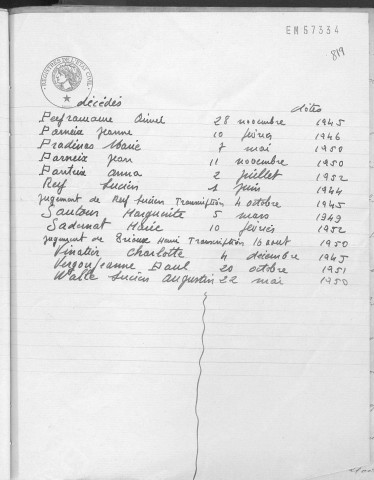 EM57334
819
REGISTRES DE L'ETAT CIVIL
décédés dates
Peyramaure Aimel 28 novembre 1945
Parneix Jeanne 10 février 1946
Pradinas Marie 7 mai 1950
Parneix Jean 11 novembre 1950
anna 2 juillet 1952
Reuf Lucien 1 juin 1944
jugement de Reuf Lucien Transcription 4 octobre 1945
Sautour Marguerite 5 mars 1949
Sadernat Marie 10 février 1952
jugement de Henri Transcription 10 aout 1950
Vinatier Charlotte 4 décembre 1945
Paul 20 octobre 1951
Walle Lucien Augustin 22 mai 1950